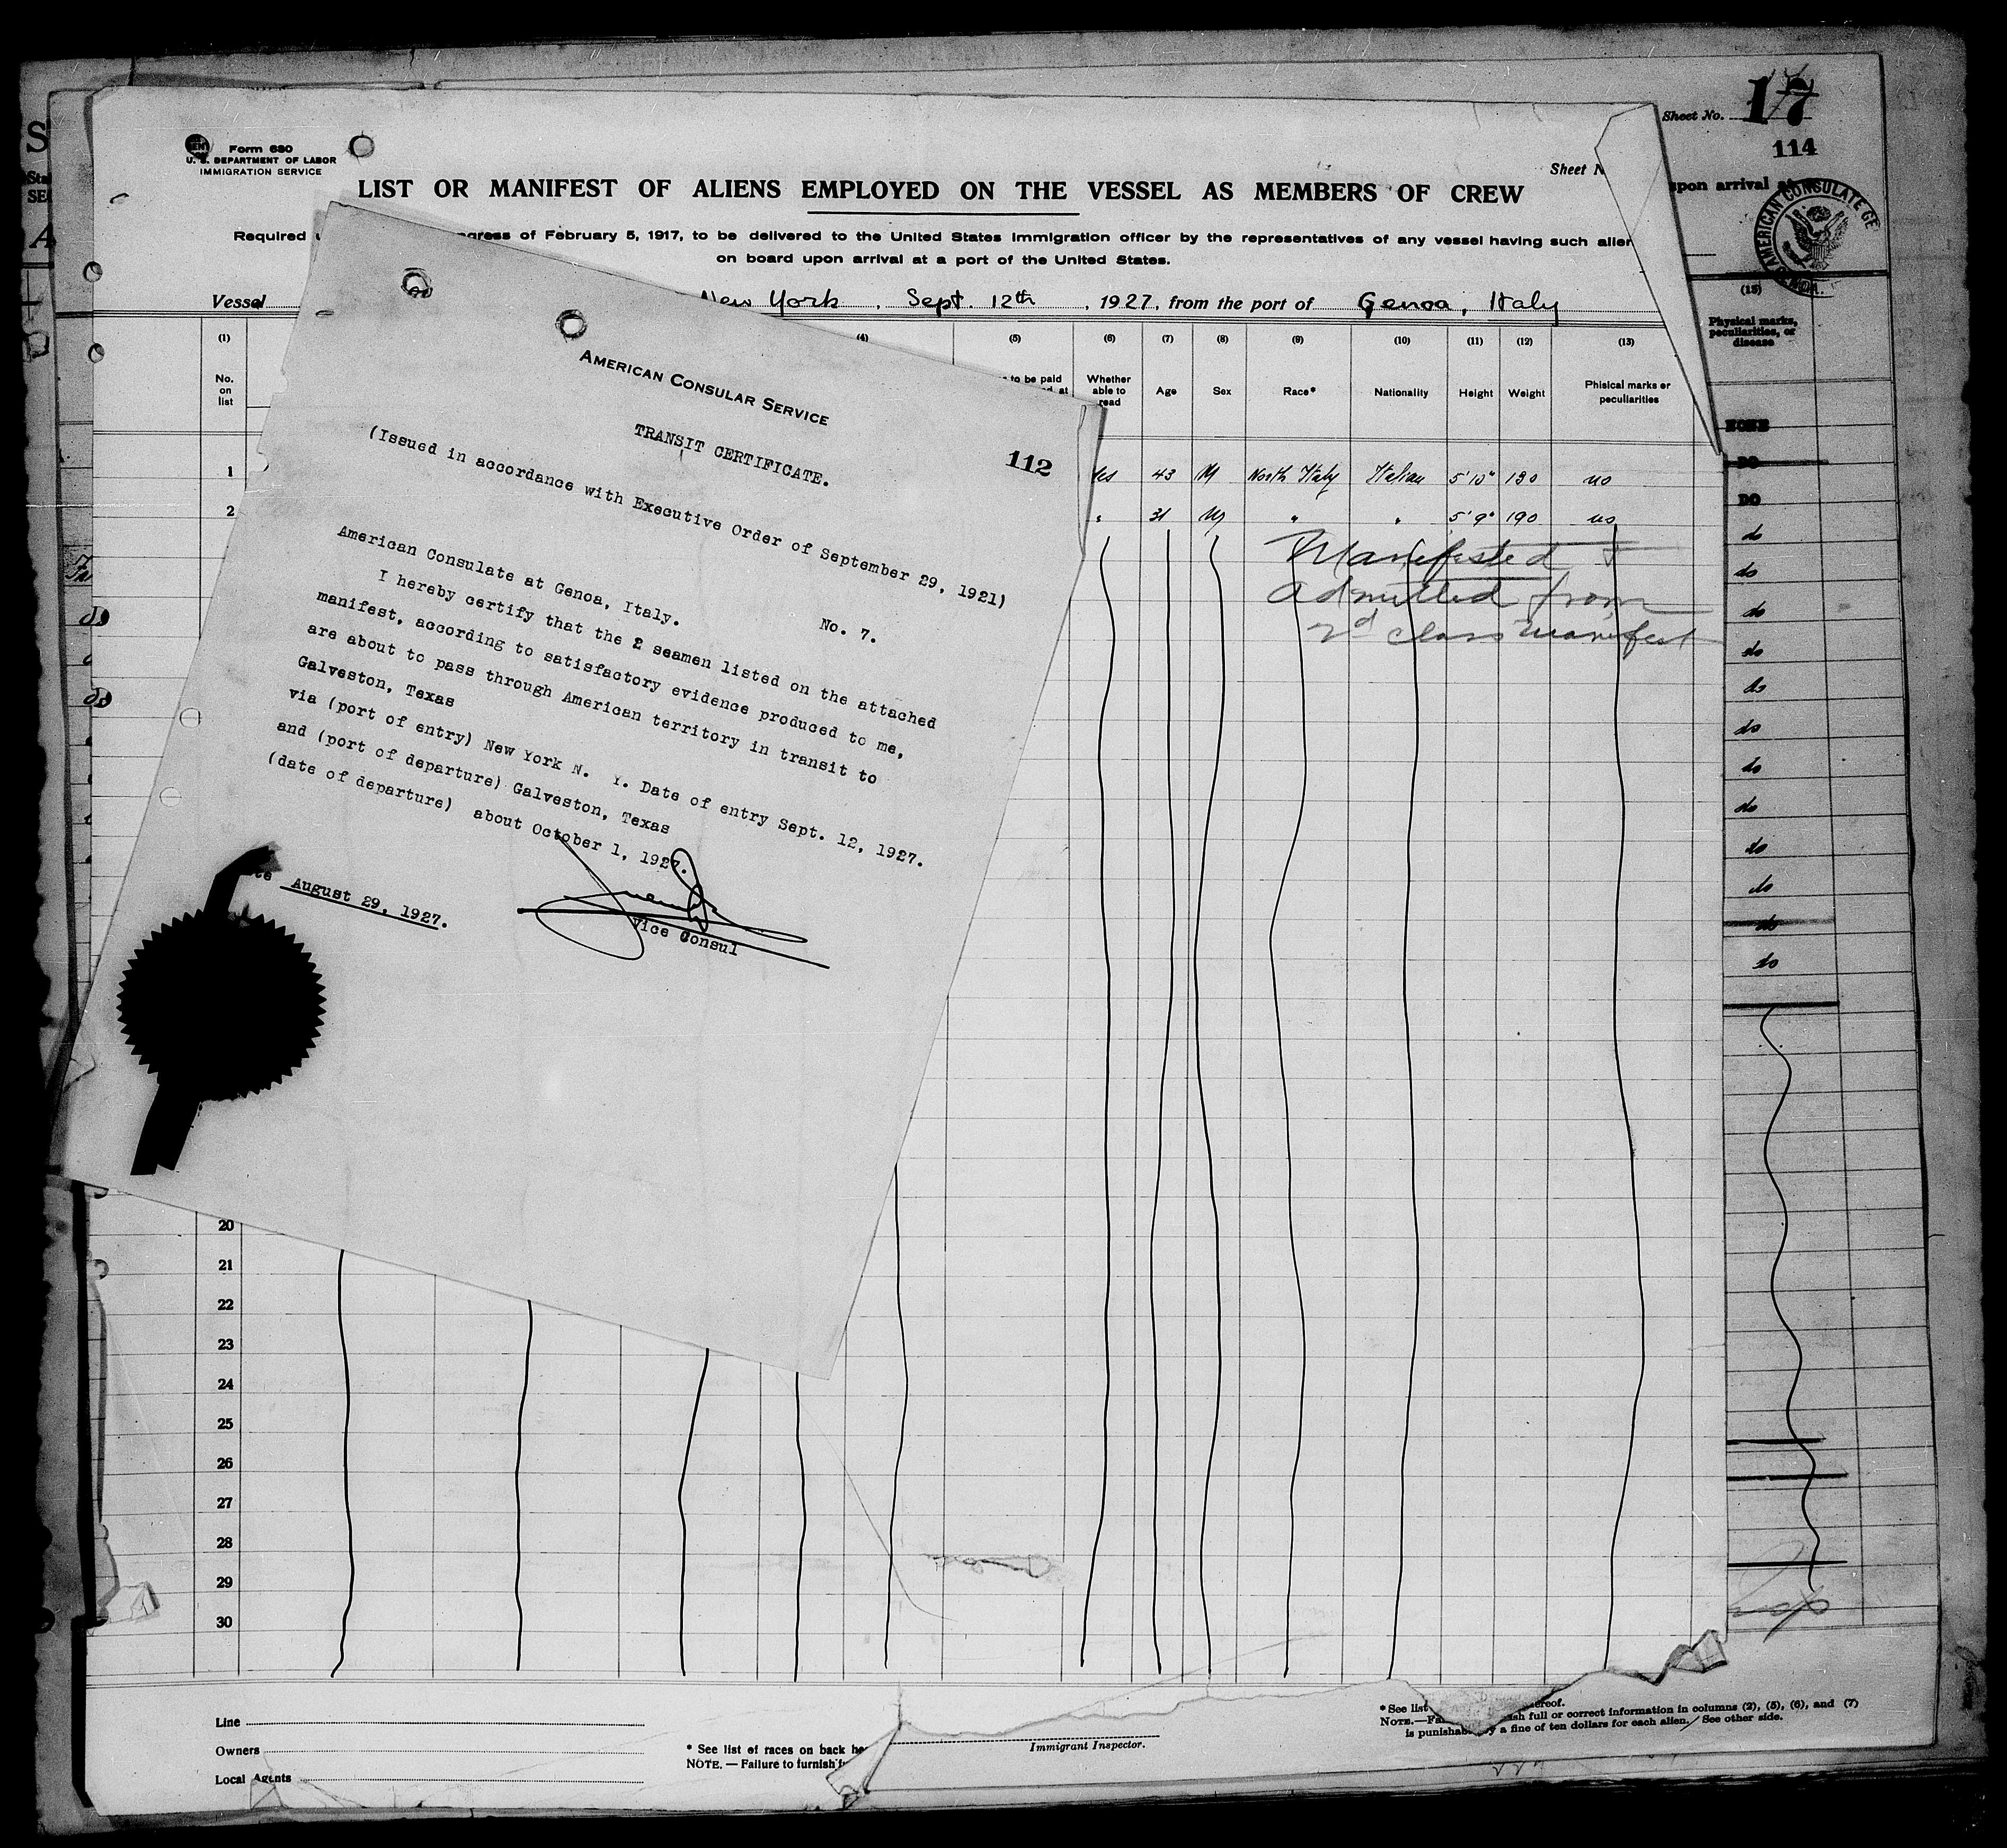 Form 680
U. S. DEPARTMENT OF LABOR
IMMIGRATION SERVICE
Sheet N
LIST OR MANIFEST OF ALIENS EMPLOYED ON THE VESSEL AS MEMBERS OF CREW
Required
ngress of February 5, 1917, to be delivered to the United States Immigration officer by the representatives of any vessel having such alien
on board upon arrival at a port of the United States.
Vessel
New York, Sept. 12th, 1927, from the port of Genoa, Italy
(1) (4) (5) (6) (7) (8) (9) (10) (11) (12) (13)
No. on list
to be paid
at
Whether able to read
Age
Sex
Race*
Nationality
Height
Weight
Phisical marks or peculiarities
1 Yes 43 M North Italy Italian 5'10" 190 no
2 " 31 M " " 5'9" 190 no
Manifested +
admitted from
2d class manifest
AMERICAN CONSULAR SERVICE
TRANSIT CERTIFICATE.
112
(Issued in accordance with Executive Order of September 29, 1921)
American Consulate at Genoa, Italy. No. 7.
I hereby certify that the 2 seamen listed on the attached
manifest, according to satisfactory evidence produced to me,
are about to pass through American territory in transit to
Galveston, Texas
via (port of entry) New York N. Y. Date of entry Sept. 12, 1927.
and (port of departure) Galveston, Texas
(date of departure) about October 1, 1927.
te August 29, 1927.
Vice Consul
20
21
22
23
24
25
26
27
28
29
30
Line
Owners
Local Agents
* See list of races on back he
NOTE. — Failure to furnish f
Immigrant Inspector.
* See list
ereof.
NOTE.—Fa
ish full or correct information in columns (2), (5), (6), and (7)
is punishab
y a fine of ten dollars for each alien. See other side.
Sheet No. 17
114
upon arrival at
AMERICAN CONSULATE GE
GENOA.
(15)
Physical marks, peculiarities, or disease
NONE
DO
DO
do
do
do
do
do
do
do
do
do
do
do
do